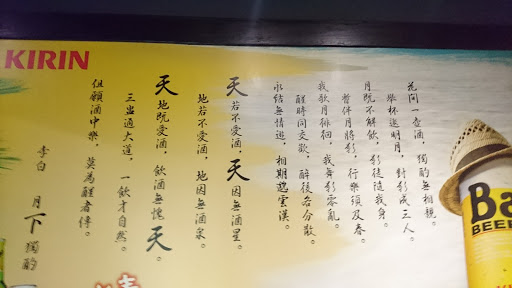 KIRIN
花間一壺酒，獨酌無相親。
舉杯邀明月，對影成三人。
月既不解飲，影徒隨我身。
暫伴月將影，行樂須及春。
我歌月徘徊，我舞影零亂。
醒時同交歡，醉後各分散。
永結無情遊，相期邈雲漢。
天若不愛酒，天因無酒星。
地若不愛酒，地因無酒泉。
天地既愛酒，飲酒無愧天。
三盅通大道，一飲才自然。
但願酒中樂，莫為醒者傳。
李白 月下獨酌
Ba
BEE
KI